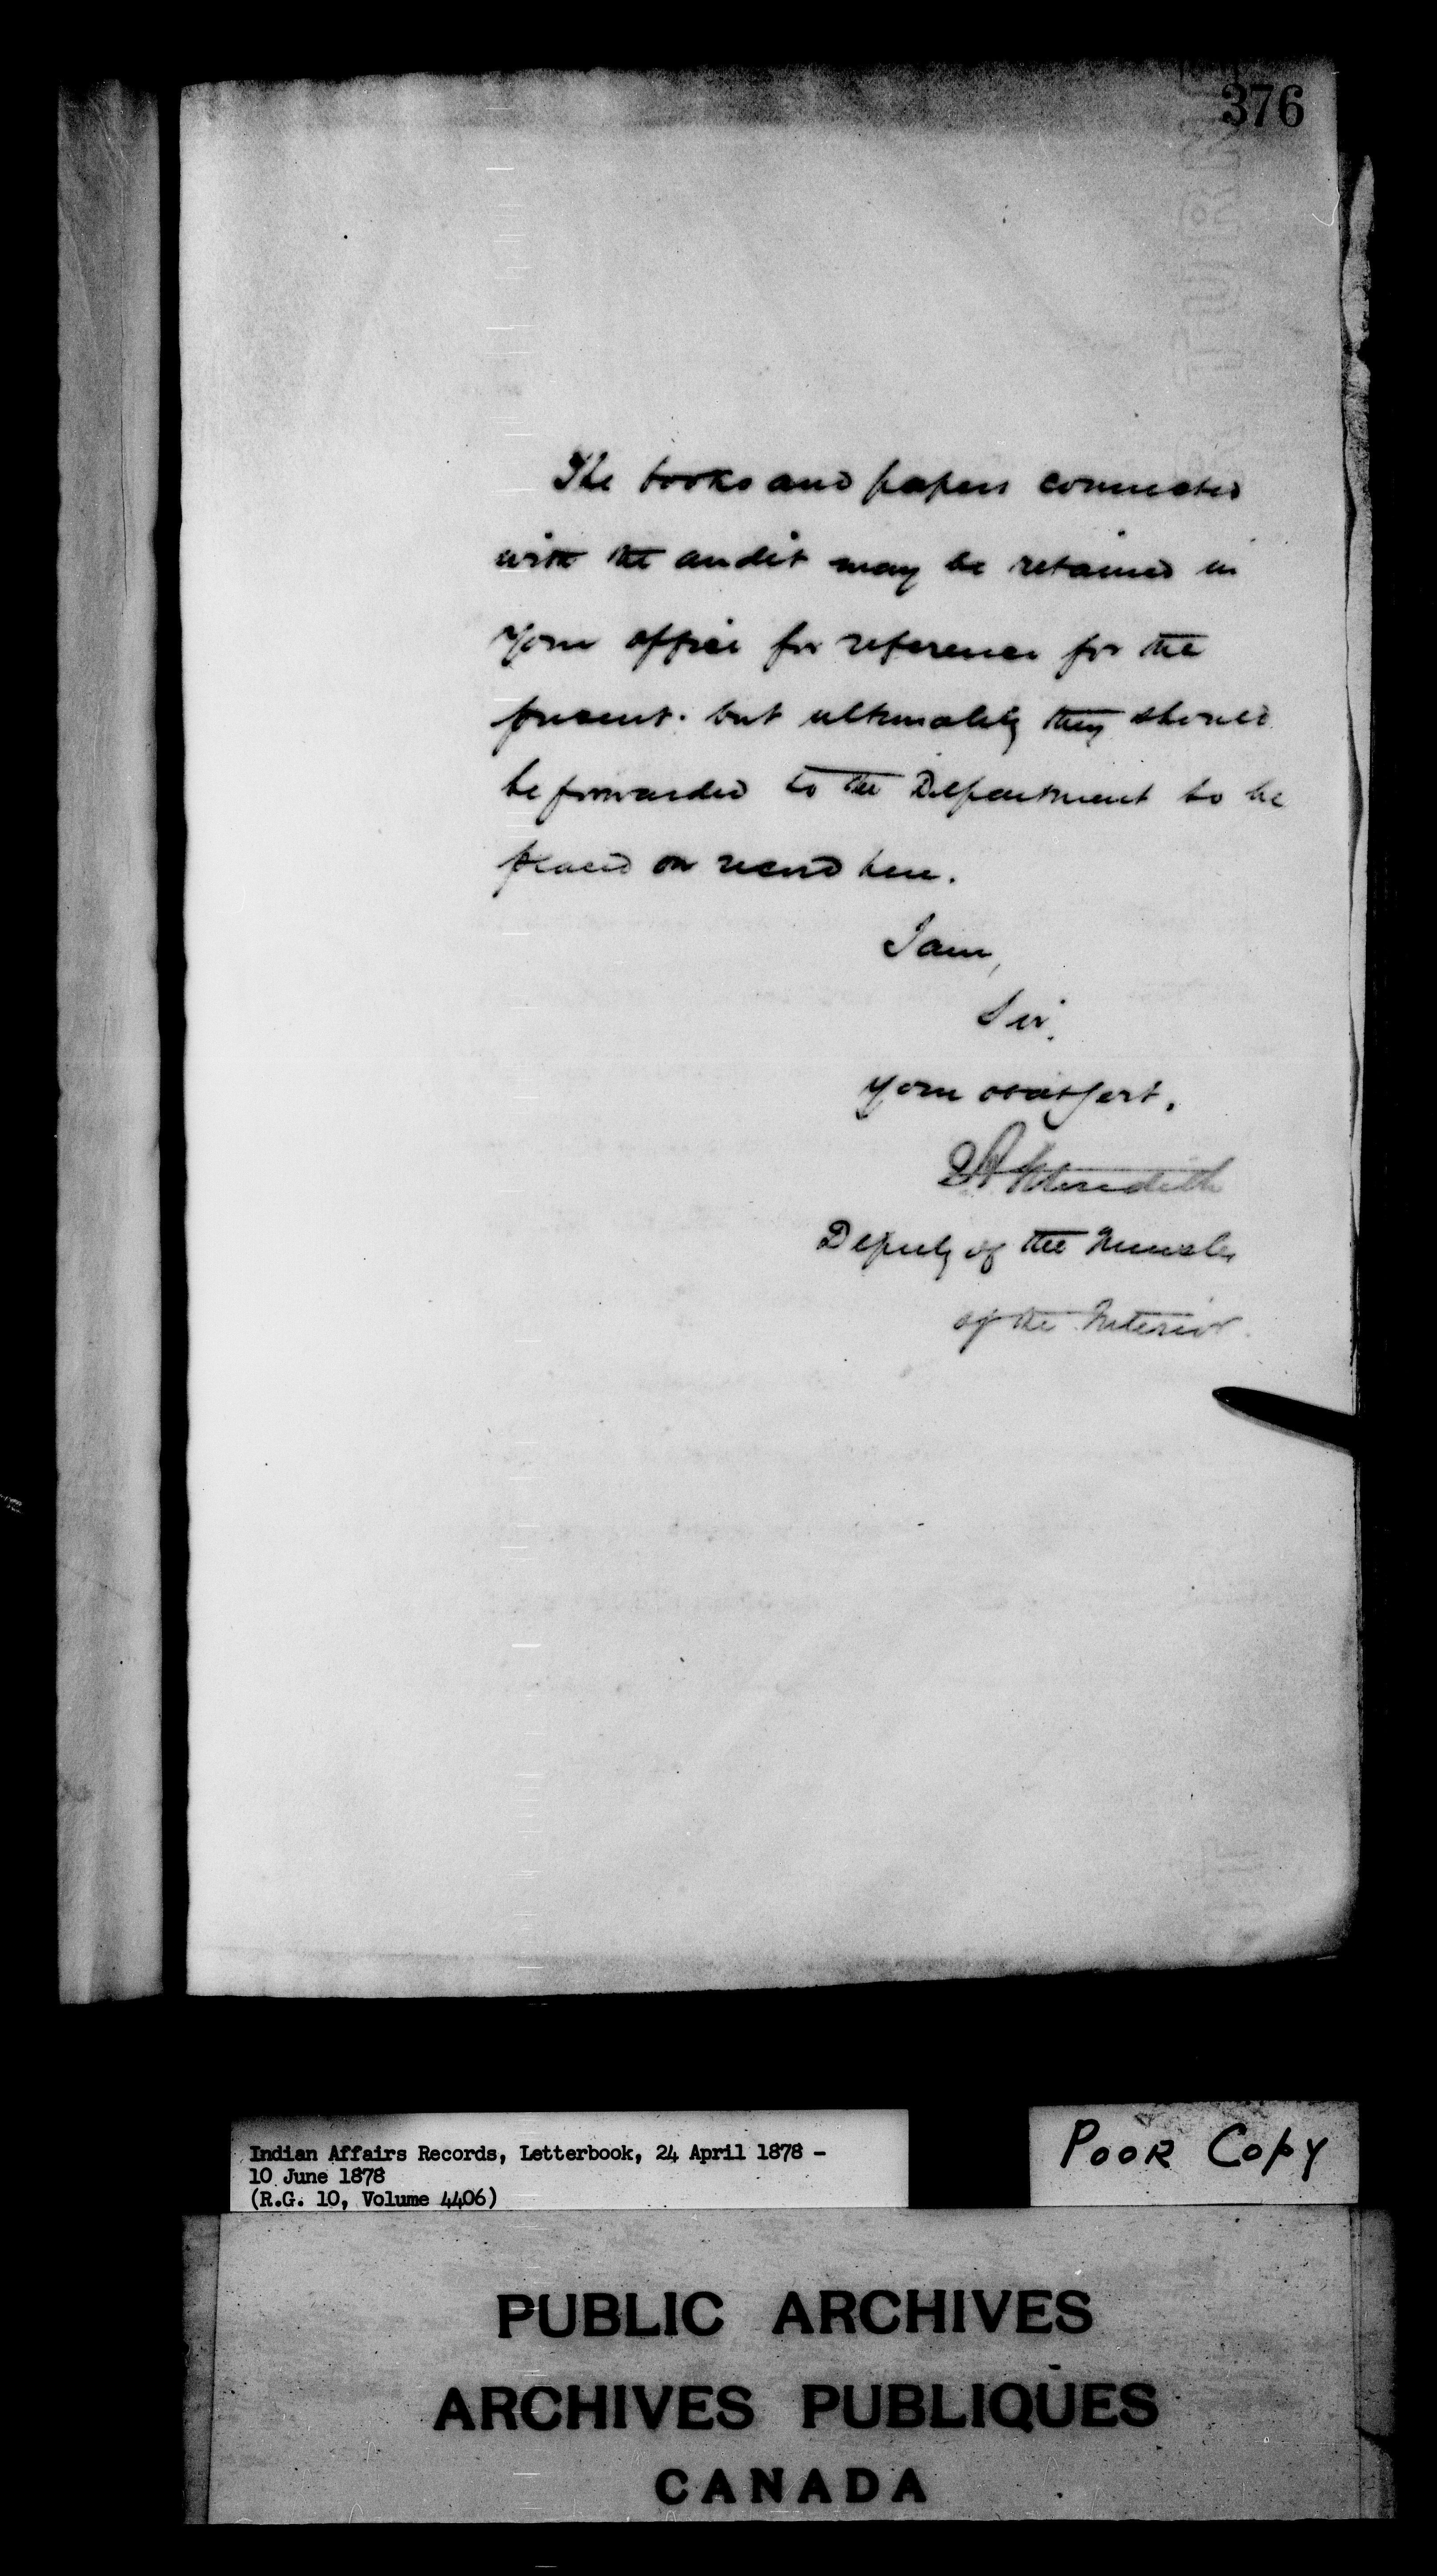 376
The books and papers connected
with the audit may be retained in
your office for reference for the
present. but ultimately they should
be forwarded to the Department to be
placed on record here.
I am,
Sir,
Your obdt Servt,
EA Meredith
Deputy of the Minister
of the Interior.
Indian Affairs Records, Letterbook, 24 April 1878 -
10 June 1878
(R.G. 10, Volume 4406)
POOR COPY
PUBLIC ARCHIVES
ARCHIVES PUBLIQUES
CANADA